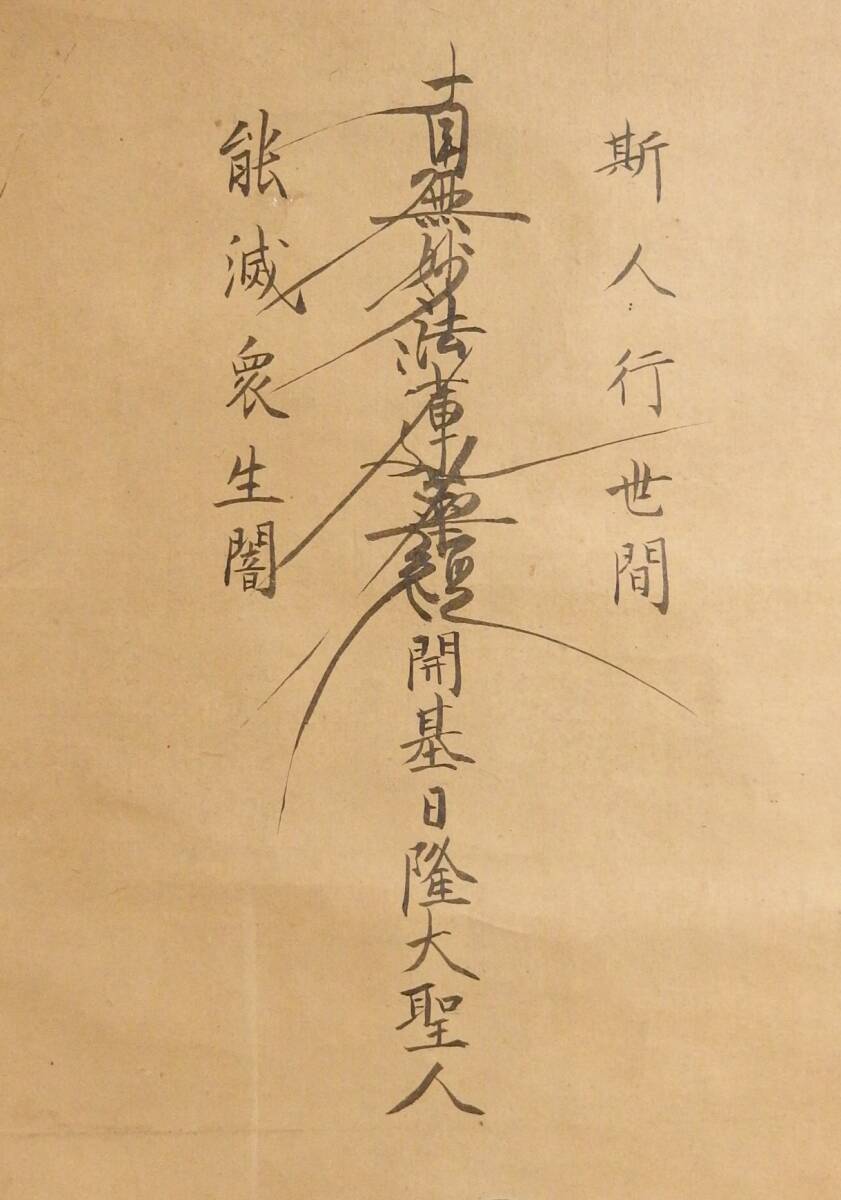 斯人行世間
南無妙法蓮華経開基日隆大聖人
能滅衆生闇